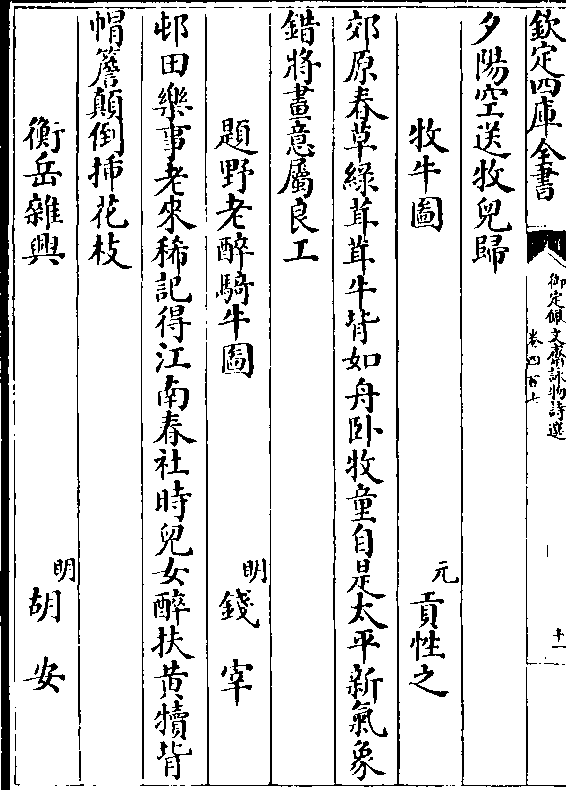 欽定四庫全書
御定佩文齋詠物詩選
卷四百七
十一
夕陽空送牧兒歸
牧牛圖　元　貢性之
郊原春草綠茸茸牛背如舟臥牧童自是太平新氣象
錯將畫意屬良工
題野老醉騎牛圖　明　錢宰
邨田樂事老來稀記得江南春社時兒女醉扶黄犢背
帽簷顛倒揷花枝
衡岳雜興　明　胡安